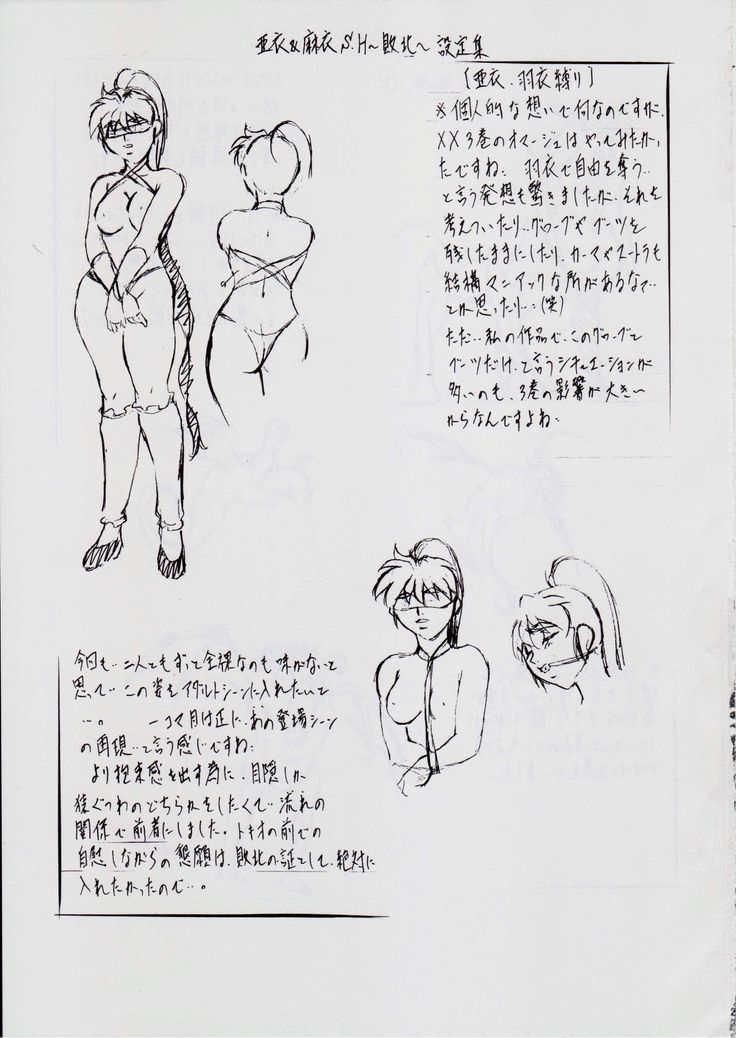 亜衣&麻衣 S.H～敗北～ 設定集
[亜衣、羽衣縛り]
※個人的な想いで何なのですが、
XX3巻のオマージュはやってみたかっ
たですね。 羽衣で自由を奪う‥
と言う発想も驚きましたが、それを
考えていたり‥グローブやブーツを
残したままにしたり、カーマやスートラも
結構マニアックな所があるなで‥
とか思ったり‥(笑)
ただ‥私の作品で、このグローブと
ブーツだけ、と言うシチュエーションが
多いのも、3巻の影響が大きい
からなんですよね。
今回も‥二人ともずっと全裸なのも味がないと
思って‥この姿をアダルトシーンに入れたいて
‥。 一コマ目は正に、あの登場シーン
の再現‥と言う感じですね。
より拘束感を出す為に、目隠しか
猿ぐつわのどちらかをしたくて‥流れの
関係で前者にしました。トキオの前での
自慰しながらの懇願は、敗北の証として、絶対に
入れたかったので‥。